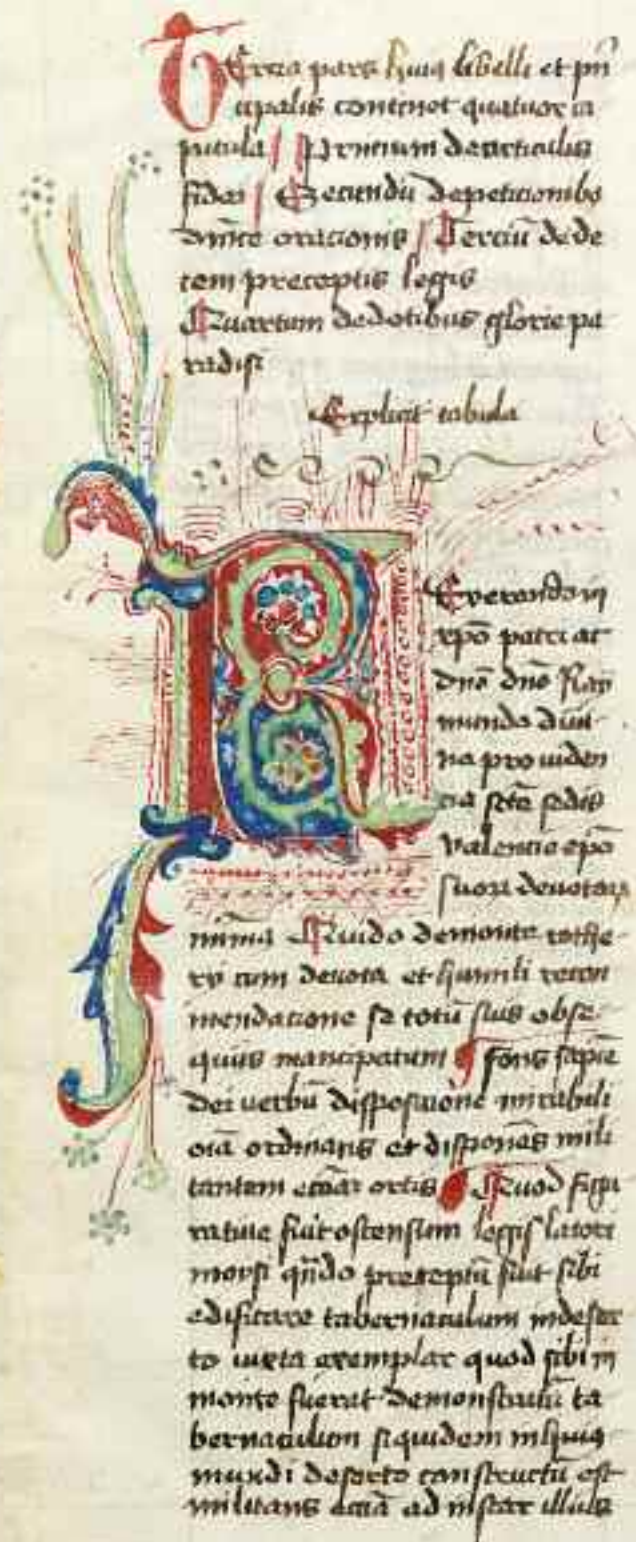 Tercia pars huiꝰ libelli et pͥn
cipalis continet quatuor ca
pitula Primum de articulis
fidei Secundū de peticionibꝰ
dn̄ice oracionis Terciū de de
cem preceptis legis
Quartum de dotibus glorie pa
radisi
Explicit tabula
Reverendo in
xp̄o patri ac
dn̄o dn̄o Ray
mundo divi
na providen
cia sc̄te sedis
Valencie ep̄o
suorū devotorū
minimꝰ Guido de monte rothe
rii cum devota et humili recom
mendacione se totū suis obse
quiis mancipatum fons sapie
dei verbū disposicione mirabili
oīa ordinans et disponēs mili
tantem ecciām Quod figu
rative fuit ostensum legis latori
moysi qn̄do preceptū fuit sibi
edificare tabernaculum in deser
to iuxta exemplar quod sibi in
monte fuerat demonstratū ta
bernaculum siquidem in huiꝰ
mundi deserto constructū est
militans ecciā ad instar illius